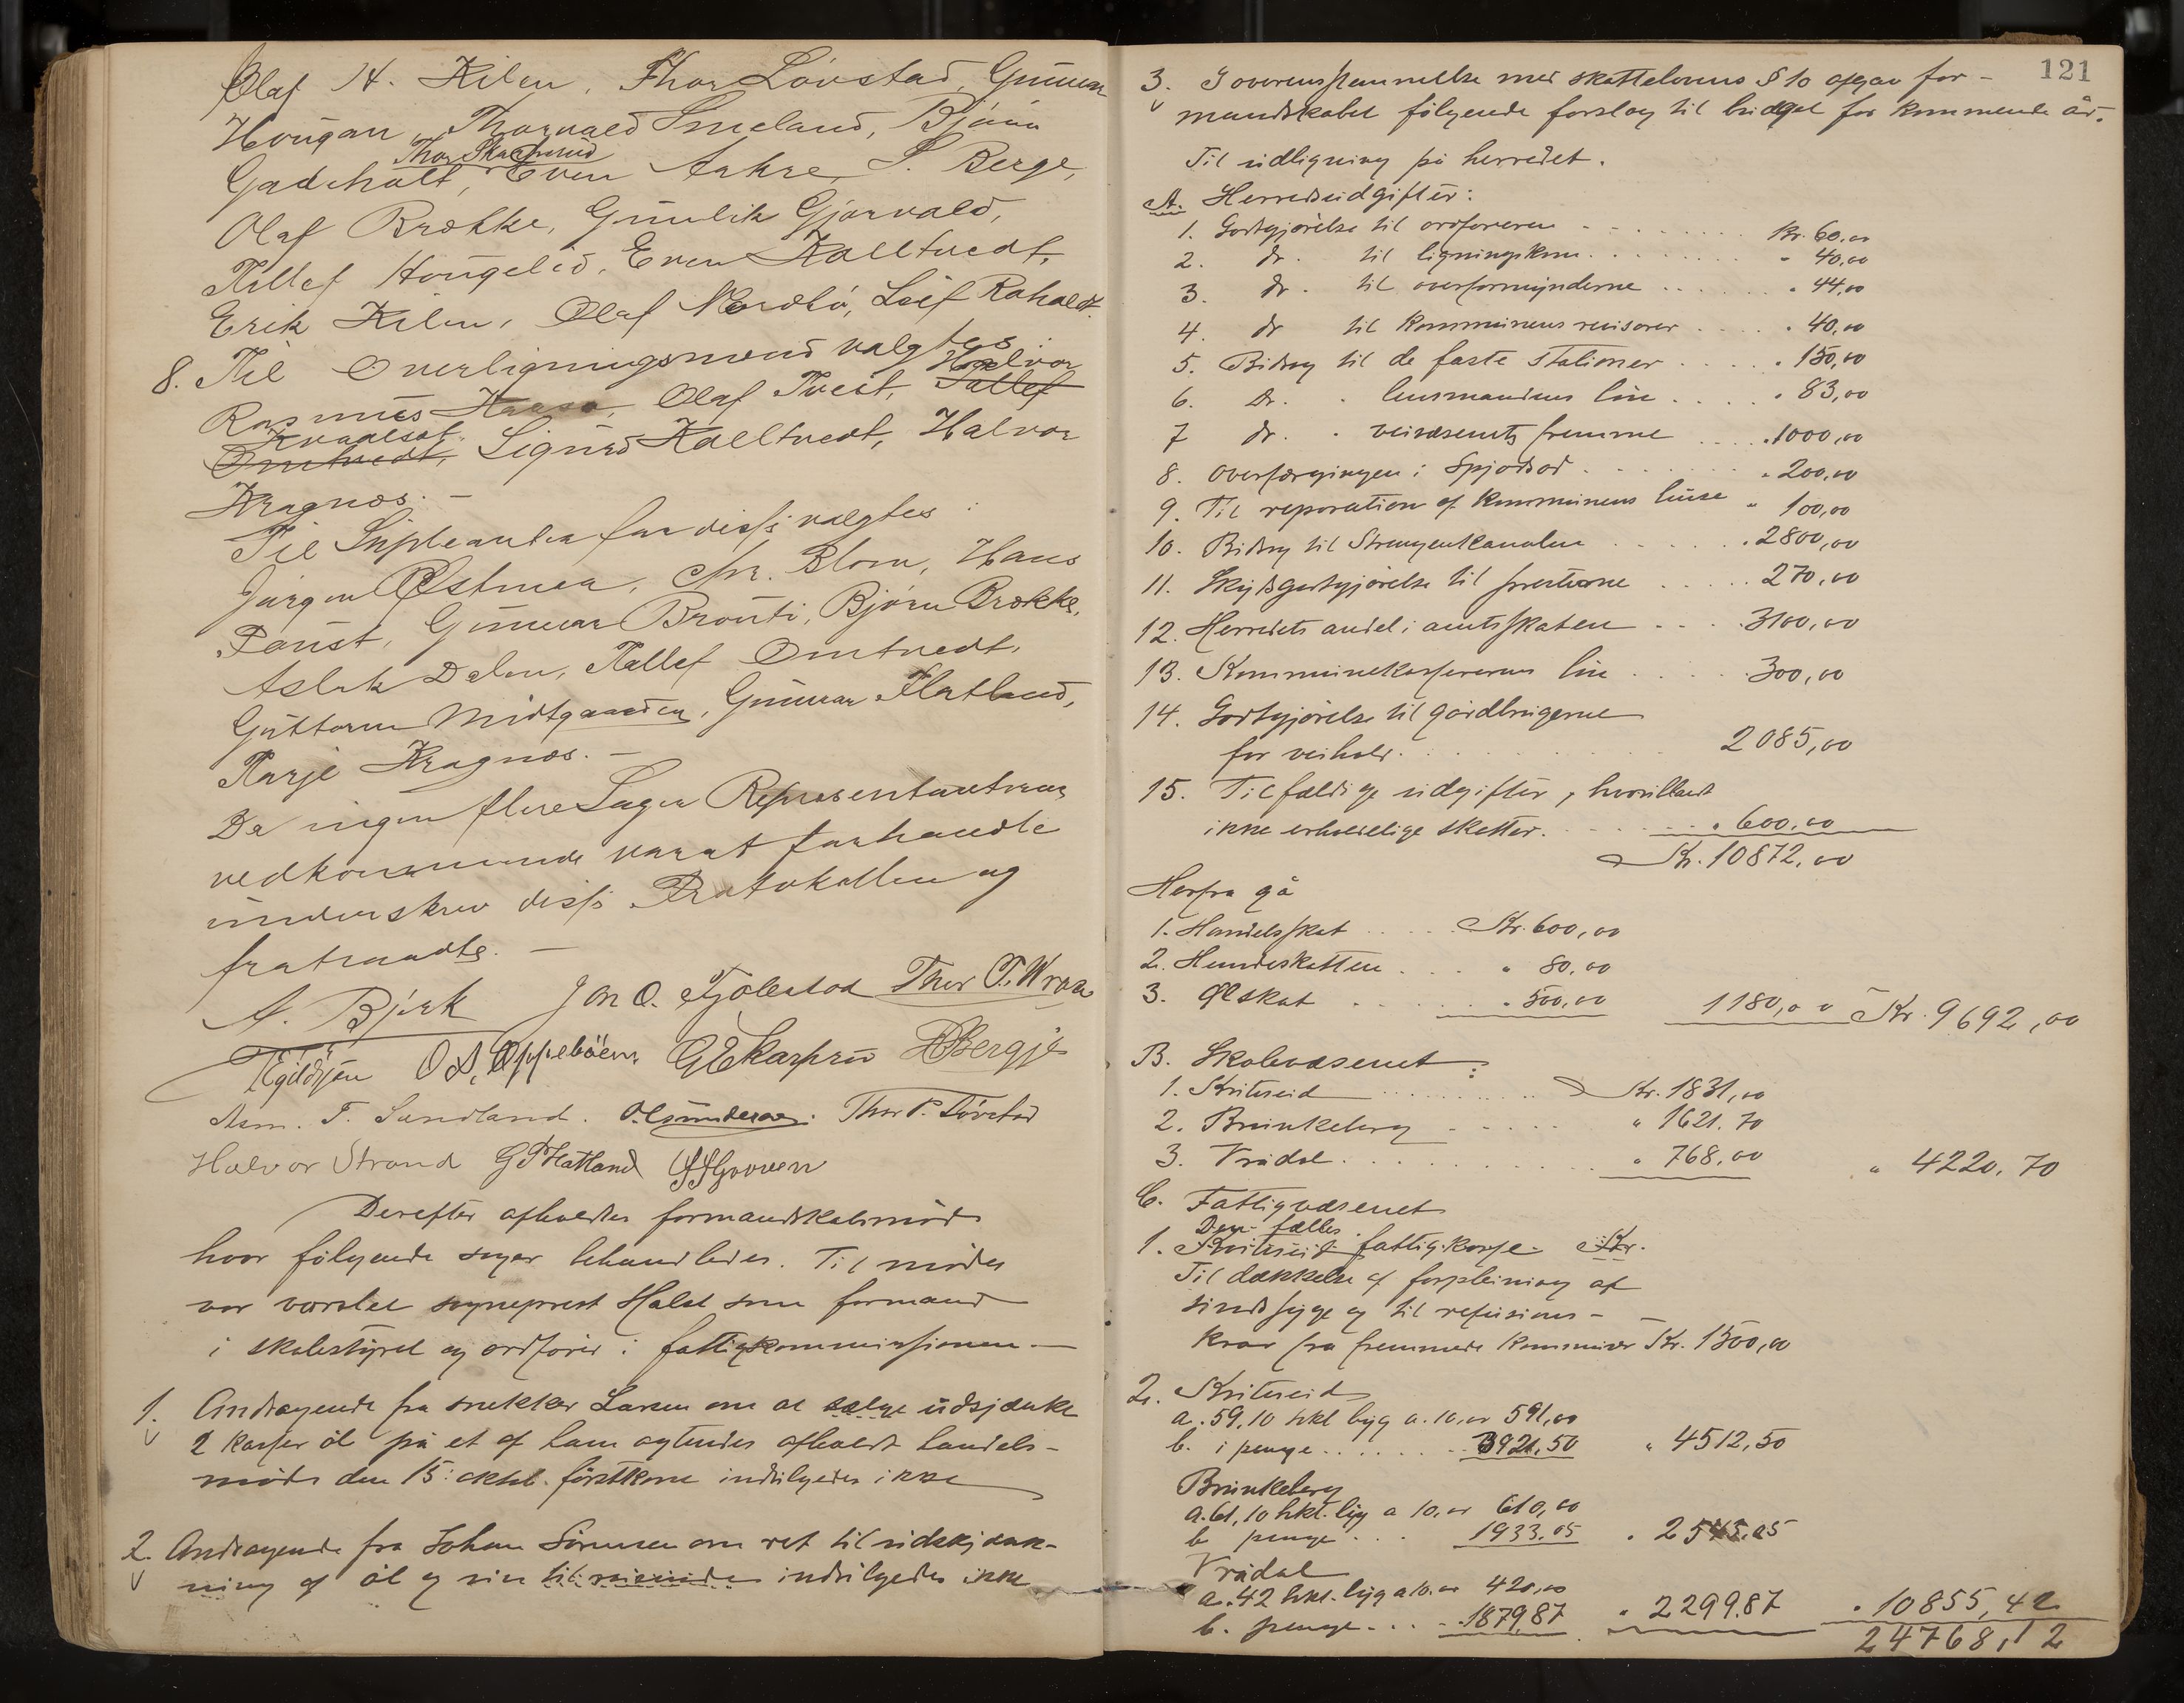 Olaf N. Kilen, Thor Lövstad, Gunnar
Hougan, Thorvald Smeland, Björn
Thor Skarprud
Gadeholt, Even Aakre, S. Berge,
Olaf Brække, Gunulik Gjervald,
Tallef Hougelid, Even Kalltvedt,
Erik Kilen, Olaf Nordbö, Leif Roholdt.
8. Til Overligningsmænd valgtes:
Halvor
Rasmus Haase, Olaf Tveit, Tallef
Kvaalsot
Omtvedt, Sigurd Kalltvedt, Halvor
Kragnæs. –
Til Supleanter for disse valgtes:
Jørgen Østmoen, Chr. Blom, Hans
Faust, Gunnar Brauti, Björn Brække,
Aslak Dalen, Tallef Omtvedt,
Guttorm Midtgaarden, Gunnar Flatland,
Tarje Kragnæs. –
Da ingen flere Sager Repræsentanterne
vedkommende varat forhandle
underskrev disse Protokollen og
fratraadte. –
A. Bjørk Jon O. Fjölestad Thor T. Wraa
O. A. Oppebøen G E Skarprud Bergje
Asm. T. Sundland. O. Gunderson. Thor P. Lövstad
Halvor Strand G T Flatland
Derefter afholdtes formandskabsmöde
hvor fölgende sager behandledes. Til mödet
var varslet sogneprest Halst som formand
i skolestyret og ordförer i fattigkommissionen. –
1. Andragende fra snekker Larsen om at sælge udsjænke
2 kasser öl på et af ham agtendes afholdt handels-
möde den 15: oktob. förstkom indvilgedes ikke
2. Andragende fra Johan Sörensen om ret til udskjænk-
ning af öl og vin til reisende indvilgedes ikke
121
3. I overensstemmelse med skattelovens § 10 afgav for-
mandskabet fölgende forslag til budget for kommende år.
Til udligning på herredet.
A. Herredsudgifter:
1. Godtgjörelse til ordföreren Kr. 60,00
2. Do. til ligningskom. " 40,00
3. do. til overformynderne " 44,00
4. do til kommunens revisorer " 40,00
5. Bidrag til de faste stationer " 150,00
6. Do. " lensmandens lön " 83,00
7 do. " veivæsenets fremme " 1000,00
8. Overfærgingen i Spjodsod " 200,00
9. Til reparation af kommunens huse " 100,00
10. Bidrag til Strengenkanalen " 2800,00
11. Skydsgodtgjörelse til presterne 270,00
12. Herredets andel i amtsskatten 3100,00
13. Kommunekassererens lön 300,00
14. Godtgjörelse til gårdbrugerne
for veihold. 2085,00
15. Tilfældige udgifter, hvoriblandt
ikke erholdelige skatter. " 600,00
Kr. 10872,00
Herfra gå
1. Handelsskat Kr. 600,00
2. Hundeskatten " 80,00
3. Ölskat " 500,00 1180,00 Kr. 9692,00
B. Skolevæsenet:
1. Kviteseid Kr. 1831,00
2. Brunkeberg " 1621.70
3. Vrådal " 768,00 " 4220.70
C. Fattigvæsenet
Den fælles
1. Kviteseid fattigkasse Kr.
Til dækkelse af forpleining af
sindssyge og til refusions-
krav fra fremmede kommuner Kr. 1500,00
2. Kviteseid
a. 59,10 hkl byg a. 10,00 591,00
b. i penge 3921,50 " 4512,50
Brunkeberg
a. 61,10 hkl. byg a 10,00 610,00
b penge 1933.05 " 2543.05
Vrådal
a. 42 hkl. byg a 10.00 420,00
b. penge 1879.87 " 2299.87 " 10855,42
24768,12